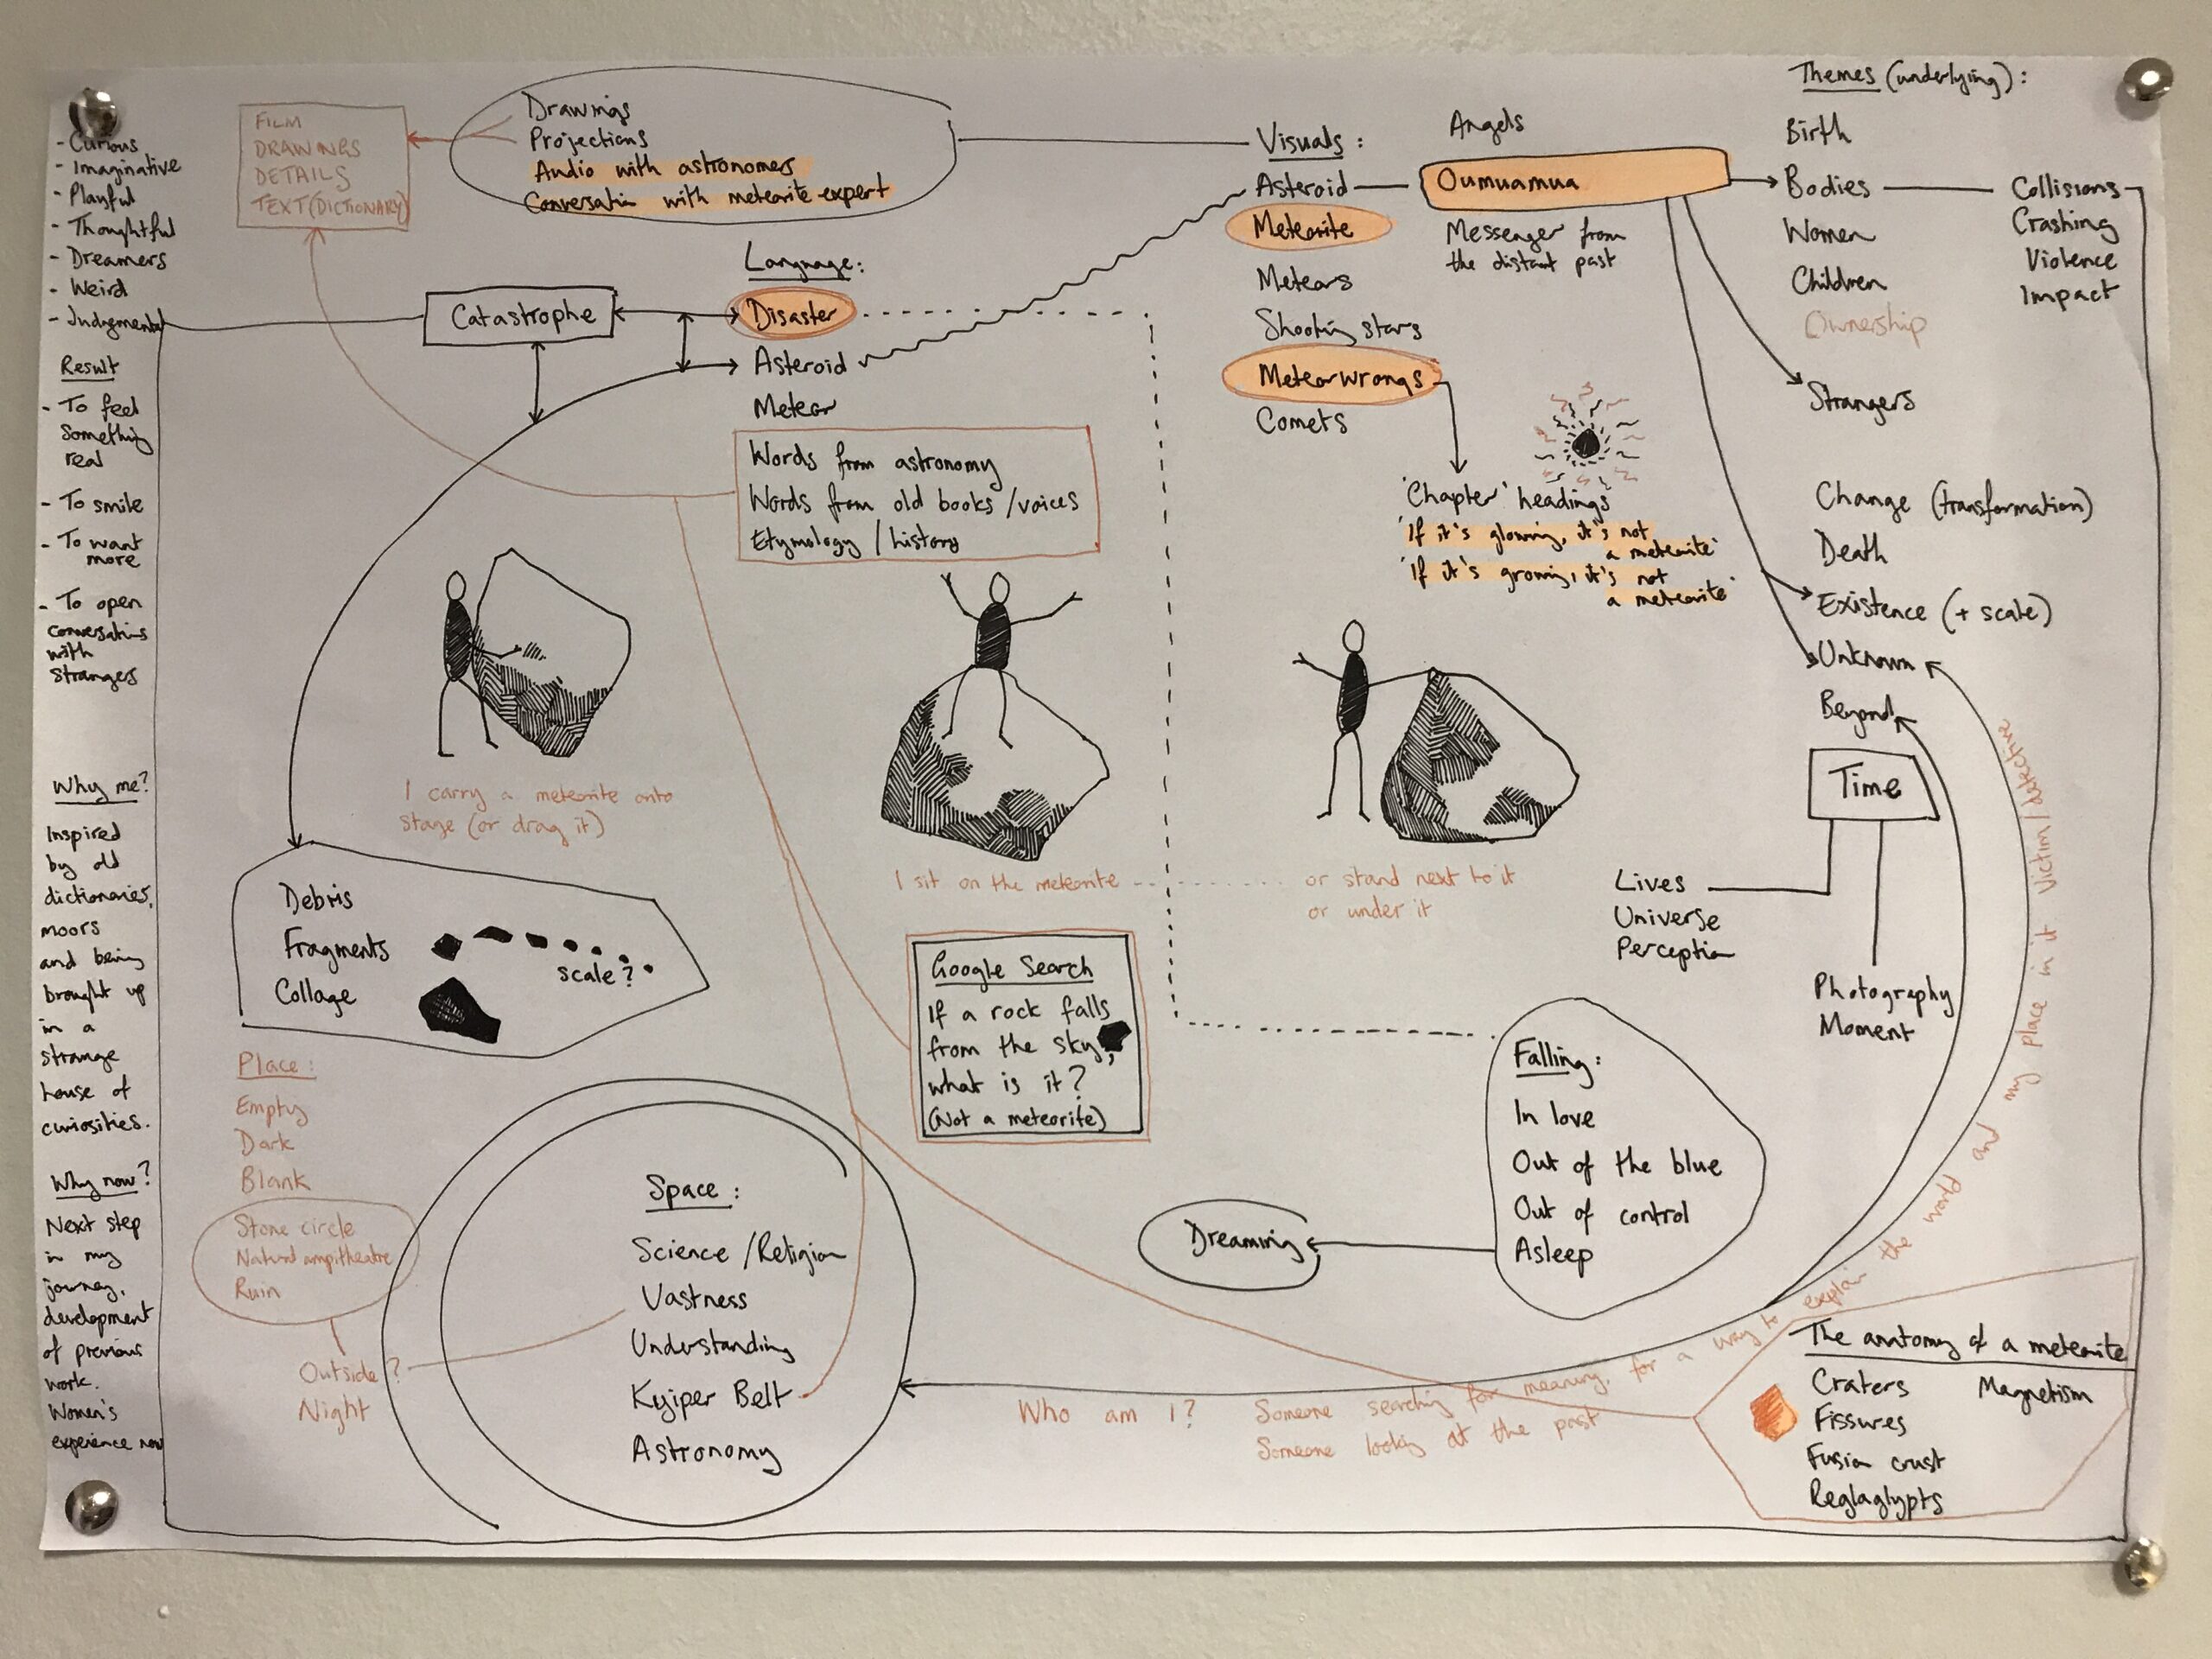 - Curious
- Imaginative
- Playful
- Thoughtful
- Dreamers
- Weird
- Judgmental
Result
- To feel
something
real
- To smile
- To want
more
- To open
conversations
with
strangers
Why me?
Inspired
by old
dictionaries,
moors
and being
brought up
in a
strange
house of
curiosities.
Why now?
Next step
in my
journey,
development
of previous
work.
Women's
experience now
FILM
DRAWINGS
DETAILS
TEXT (DICTIONARY)
Drawings
Projections
Audio with astronomers
Conversation with meteorite expert
Catastrophe
Language:
Disaster
Asteroid
Meteor
Words from astronomy
Words from old books / voices
Etymology / history
Visuals:
Asteroid
Meteorite
Meteors
Shooting stars
Meteorwrongs
Comets
Angels
Oumuamua
Messenger from
the distant past
'Chapter' headings
'If it's glowing, it's not
a meteorite'
'If it's growing, it's not
a meteorite'
Themes (underlying):
Birth
Bodies
Women
Children
Ownership
Strangers
Change (transformation)
Death
Existence (+ scale)
Unknown
Beyond
Collisions
Crashing
Violence
Impact
Time
Lives
Universe
Perception
Photography
Moment
I carry a meteorite onto
stage (or drag it)
I sit on the meteorite
or stand next to it
or under it
Debris
Fragments
Collage
scale?
Place:
Empty
Dark
Blank
Stone circle
Natural ampitheatre
Ruin
Outside?
Night
Space:
Science / Religion
Vastness
Understanding
Kyiper Belt
Astronomy
Google Search
If a rock falls
from the sky,
what is it?
(Not a meteorite)
Falling:
In love
Out of the blue
Out of control
Asleep
Dreaming
Who am I?
Someone searching for meaning, for a way to explain the world and my place in it Victim/detective
Someone looking at the past
The anatomy of a meteorite
Craters
Fissures
Fusion crust
Reglaglypts
Magnetism